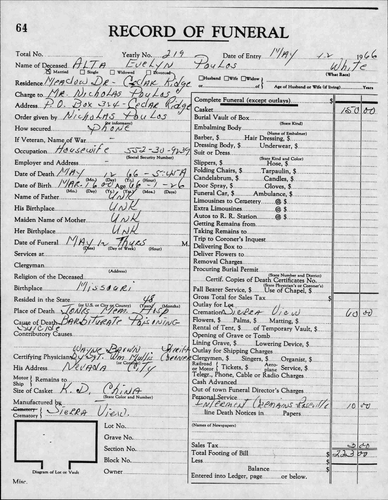 64
RECORD OF FUNERAL
Total No. Yearly No. 219 Date of Entry MAY 12 1966
Name of Deceased ALTA EVELYN POULOS White
(What Race)
Married Single Widowed Divorced
Husband Wife Widow
Age of Husband or Wife (if living) Years
Residence MEADOW DR - CEDAR RIDGE
Charge to MR. NICHOLAS POULOS
Address P.O. BOX 324 - CEDAR RIDGE
Order given by NICHOLAS POULOS
How secured PHONE
If Veteran, Name of War
Occupation HOUSEWIFE
(Social Security Number)
Employer and Address
Date of Death MAY 12 66 - 5:45 A
Date of Birth MAR. 16 00 Age 66 - 1 - 26
Name of Father UNK
His Birthplace UNK
Maiden Name of Mother UNK
Her Birthplace UNK
Date of Funeral MAY 12 THURS M.
Services at
Clergyman
Religion of the Deceased
Birthplace MISSOURI
Resided in the State 48
Place of Death JONES MEM. HOSP
Cause of Death BARBITURATE POISONING
SUICIDE
Contributory Causes
WAYNE BROWN SHERIFF
Certifying Physician
His Address NEVADA CITY
Motor Remains to
Ship
Size of Casket K.D. CHINA
(State Color and Number)
Manufactured by
Cemetery
Crematory SIERRA VIEW
Lot No.
Grave No.
Section No.
Block No.
Owner
Diagram of Lot or Vault
Misc.
Complete Funeral (except outlays) $
Casket 150 00
Burial Vault of Box
(State Kind)
Embalming Body
(Name of Embalmer)
Barber, $ Hair Dressing, $
Dressing Body, $ Underwear, $
Suit or Dress
(State Kind and Color)
Slippers, $ Hose, $
Folding Chairs, $ Tarpaulin, $
Candelabrum, $ Candles, $
Door Spray, $ Gloves, $
Funeral Car, $ Ambulance, $
Limousines to Cemetery @ $
Extra Limousines @ $
Autos to R. R. Station @ $
Getting Remains from
Taking Remains to
Trip to Coroner's Inquest
Delivering Box to
Deliver Flowers to
Removal Charges
Procuring Burial Permit
(State Number and District)
Certif. Copies of Death Certificates No.
Pall Bearer Service, $ Use of Chapel, $
Gross Total for Sales Tax $
Outlay for Lot
Cremation SIERRA VIEW 60 00
Flowers, $ Palms, $ Matting, $
Rental of Tent, $ of Temporary Vault, $
Opening of Grave or Tomb
Lining Grave, $ Lowering Device, $
Outlay for Shipping Charges
Clergyman, $ Singers, $ Organist, $
Railroad or Motor Tickets, $ Aeroplane Service, $
Telegr., Phone, Cable or Radio Charges
Cash Advanced
Out of town Funeral Director's Charges
Personal Service
INTERMENT CREMAINS 10 00
line Death Notices in Papers
(Names of Newspapers)
Sales Tax $ 3 00
Total Footing of Bill $ 223 00
Less $
Balance $
Entered into Ledger, page or below.